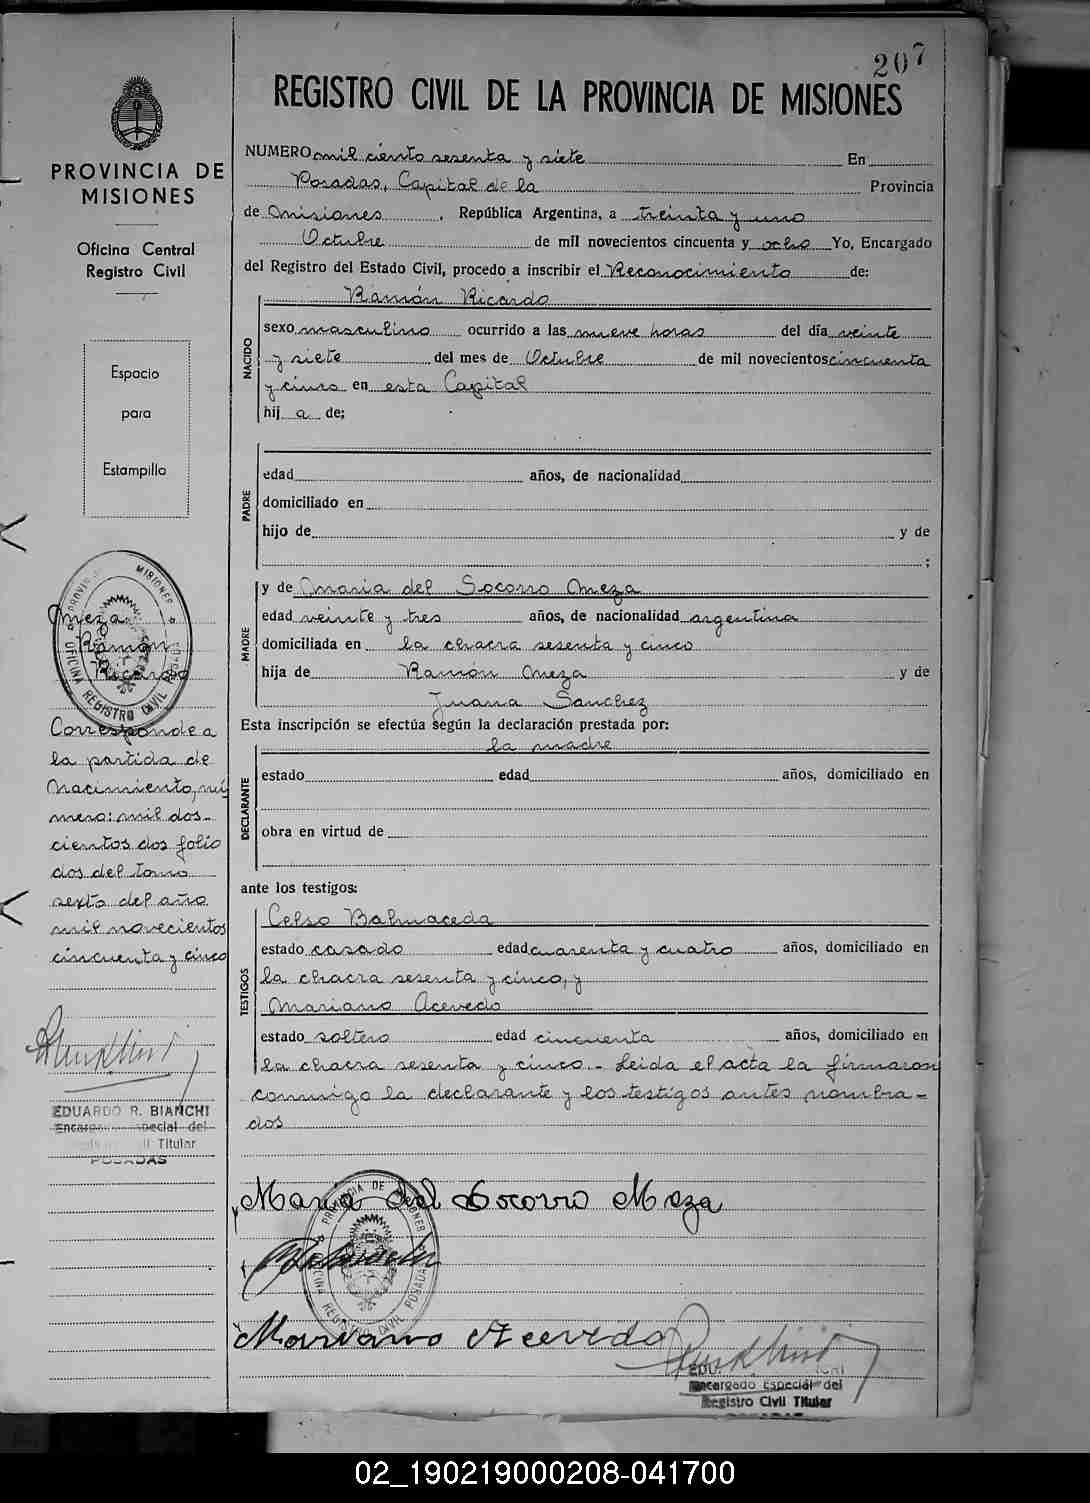 207
REGISTRO CIVIL DE LA PROVINCIA DE MISIONES
NUMERO mil ciento sesenta y siete En
Posadas, Capital de la Provincia
de Misiones, República Argentina, a treinta y uno
Octubre de mil novecientos cincuenta y ocho Yo, Encargado
del Registro del Estado Civil, procedo a inscribir el Reconocimiento de:
NACIDO
Ramón Ricardo
sexo masculino ocurrido a las nueve horas del día veinte
y siete del mes de Octubre de mil novecientos cincuenta
y cinco en esta Capital
hij a de;
PADRE
edad años, de nacionalidad
domiciliado en
hijo de y de
;
MADRE
y de Maria del Socorro Meza
edad veinte y tres años, de nacionalidad argentina
domiciliada en la chacra sesenta y cinco
hija de Ramón Meza y de
Juana Sanchez
Esta inscripción se efectúa según la declaración prestada por:
la madre
DECLARANTE
estado edad años, domiciliado en
obra en virtud de
ante los testigos:
TESTIGOS
Celso Balmaceda
estado casado edad cuarenta y cuatro años, domiciliado en
la chacra sesenta y cinco, y
Mariano Acevedo
estado soltero edad cincuenta años, domiciliado en
la chacra sesenta y cinco.- Leida el acta la firmaron
conmigo la declarante y los testigos antes nombra-
dos
Maria del Socorro Meza
Mariano Acevedo
PROVINCIA DE MISIONES
OFICINA REGISTRO CIVIL POSADAS
EDU. CHI
Encargado Especial del
Registro Civil Titular
POSADAS
PROVINCIA DE
MISIONES
Oficina Central
Registro Civil
Espacio
para
Estampillo
PROVIN MISIONES
OFICINA REGISTRO CIVIL POSADA
Meza
Ramón
Ricardo
Corresponde a
la partida de
Nacimiento, nú
mero: mil dos-
cientos dos folio
dos del tomo
sexto del año
mil novecientos
cincuenta y cinco
EDUARDO R. BIANCHI
Encargado Especial del
Titular
POSADAS
02_190219000208-041700